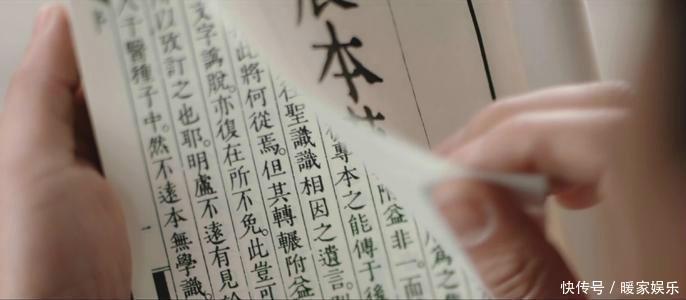 本
為之
附益非一面
專本之能傳于後
聖識識相因之遺言
此將何從焉。但其轉輾附益
文字譌脫。亦復在所不免。此豈可
以攷訂之也耶。明盧不遠有見
于醫種子中。然不遠本無學識。
一
快传号 / 暖家娱乐